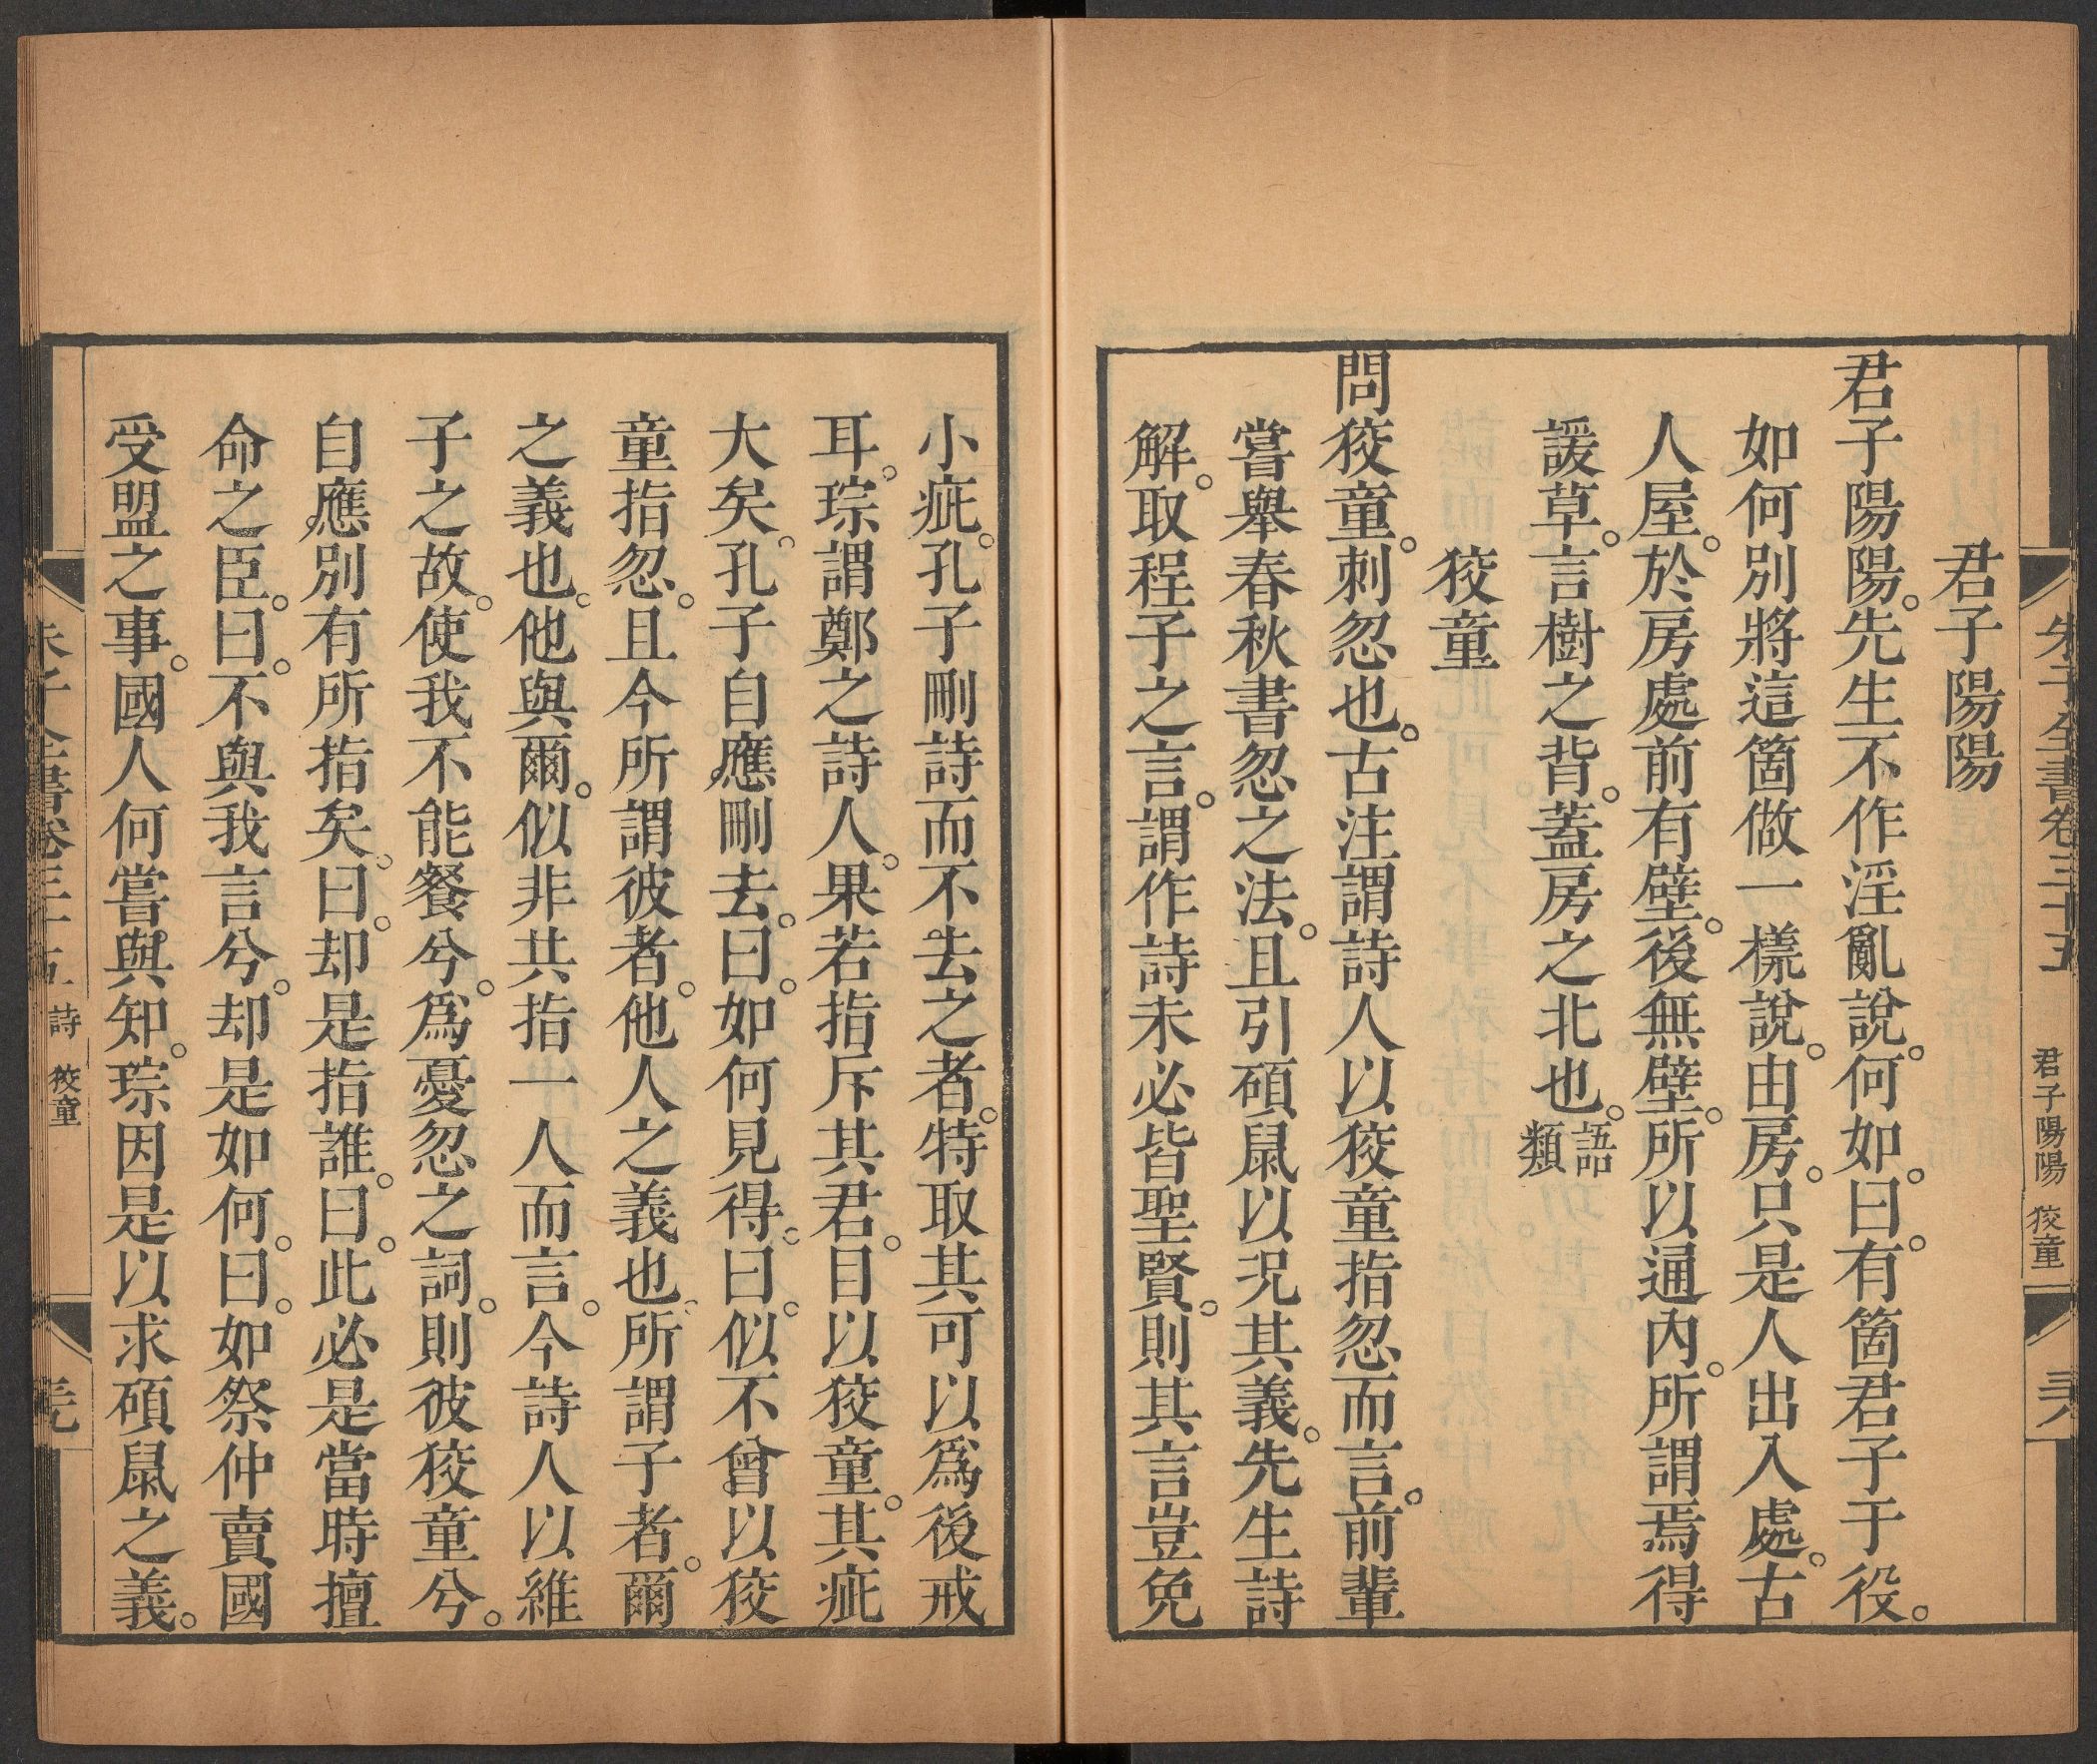 君子陽陽
君子陽陽。先生不作淫亂說。何如。曰。有箇君子于役。
如何別將這箇做一樣說。由房。只是人出入處。古
人屋。於房處前有壁。後無壁。所以通內。所謂焉得
諼草。言樹之背。蓋房之北也。語類
狡童
問狡童。刺忽也。古注謂詩人以狡童指忽而言。前輩
嘗舉春秋書忽之法。且引碩鼠以況其義。先生詩
解。取程子之言。謂作詩未必皆聖賢。則其言豈免
小疵。孔子刪詩而不去之者。特取其可以爲後戒
耳。琮謂鄭之詩人。果若指斥其君。目以狡童。其疵
大矣。孔子自應刪去。曰。如何見得。曰。似不曾以狡
童指忽。且今所謂彼者。他人之義也。所謂子者。爾
之義也。他與爾。似非共指一人而言。今詩人以維
子之故。使我不能餐兮。爲憂忽之詞。則彼狡童兮。
自應別有所指矣。曰。却是指誰。曰。此必是當時擅
命之臣。曰。不與我言兮。却是如何。曰。如祭仲賣國
受盟之事。國人何嘗與知。琮因是以求碩鼠之義。
朱子全書卷三十五 君子陽陽 狡童
朱子全書卷三十五 詩 狡童